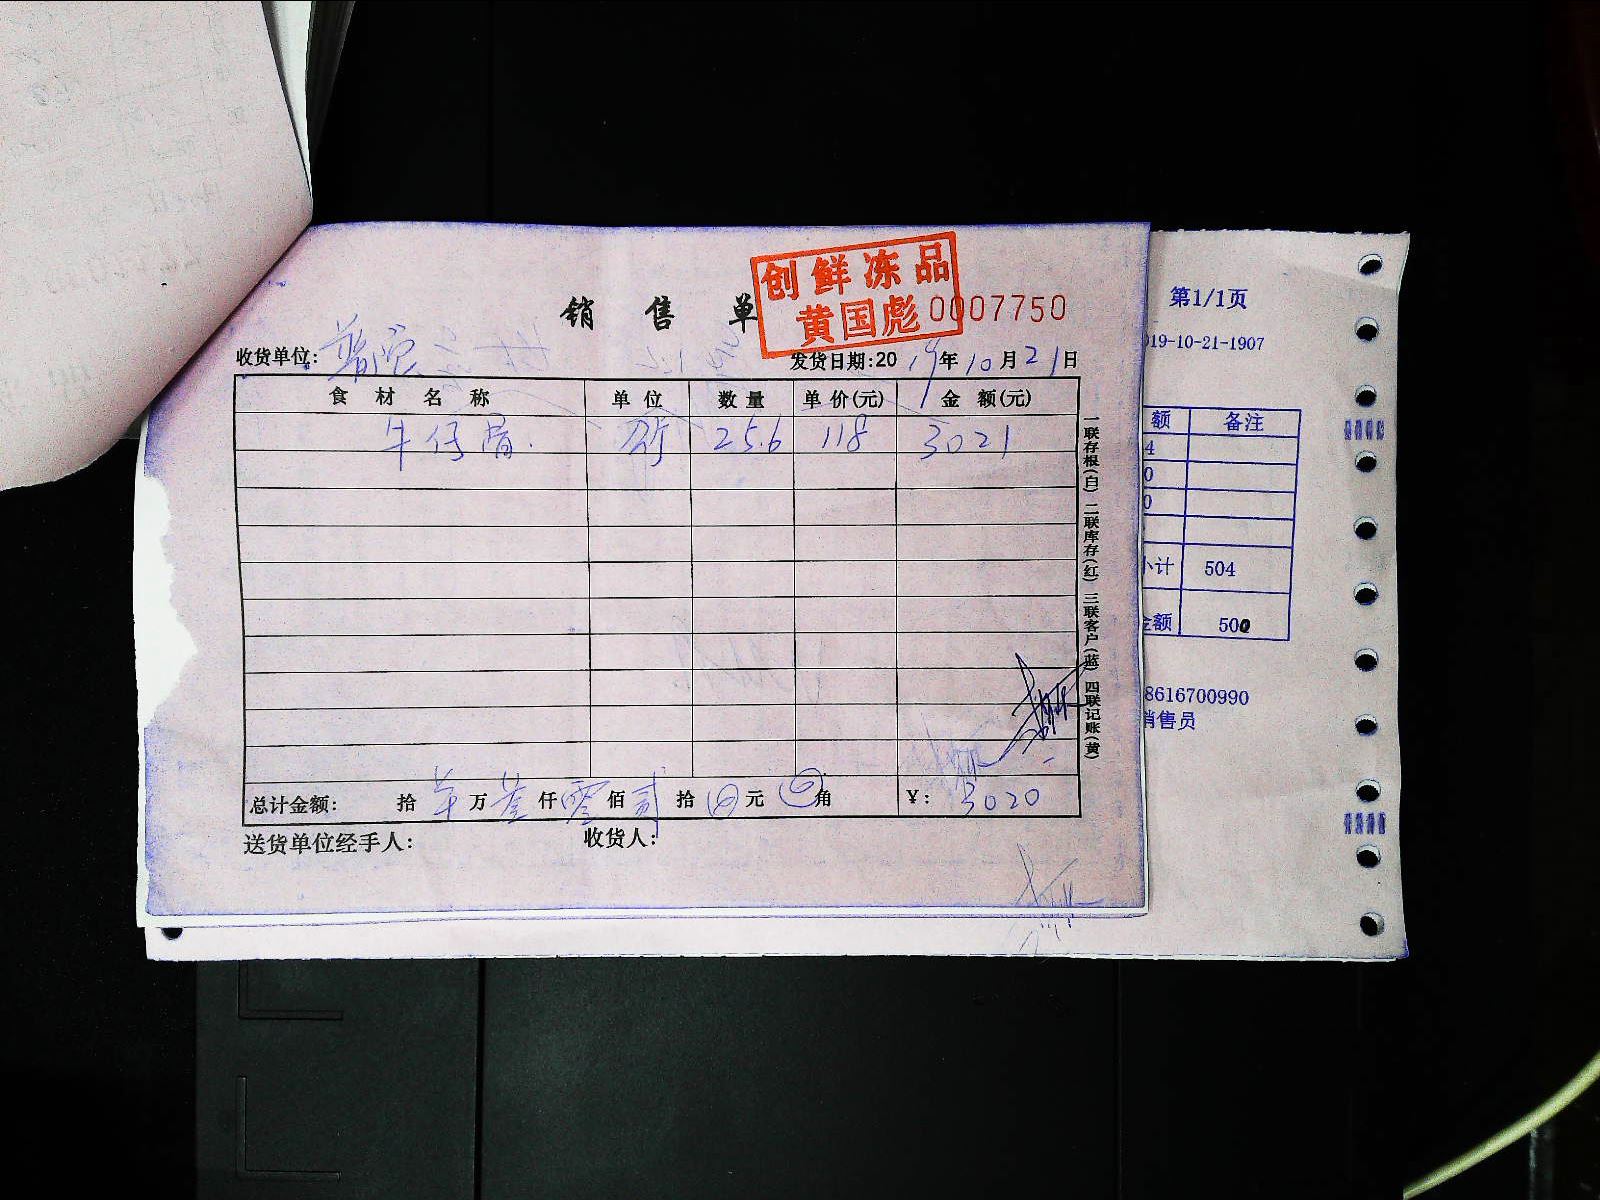 创鲜冻品
黄国彪
销售单 0007750
收货单位: 发货日期:2019年10月21日
食材名称 单位 数量 单价(元) 金额(元)
牛仔骨 斤 25.6 118 3021
总计金额: 拾 万 叁仟零佰贰拾 元 角 ¥: 3020
送货单位经手人: 收货人:
一联存根(白) 二联库存(红) 三联客户(蓝) 四联记账(黄)
第1/1页
019-10-21-1907
额 备注
4
0
0
小计 504
金额 500
8616700990
销售员